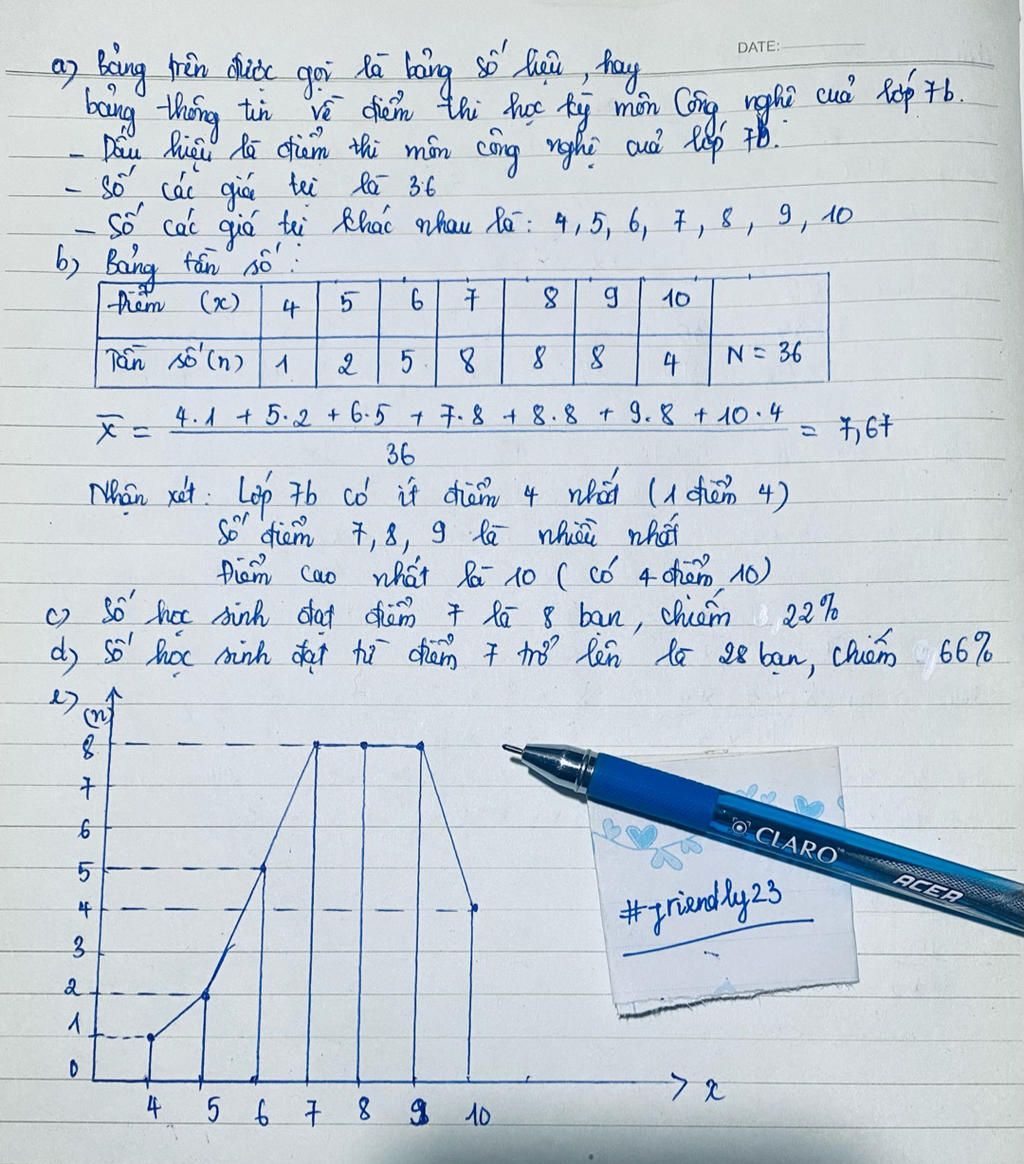 DATE:
a) Bảng trên được gọi là bảng số liệu, hay
bảng thống tin về điểm thi học kỳ môn Công nghệ cuả lớp 7b.
- Dấu hiệu là điểm thi môn công nghệ cuả lớp 7B.
- Số các giá trị là 36
- Số các giá trị khác nhau là: 4, 5, 6, 7, 8, 9, 10
b) Bảng tần số:
Điểm (x) 4 5 6 7 8 9 10
Tần số (n) 1 2 5 8 8 8 4 N = 36
x̄ = (4.1 + 5.2 + 6.5 + 7.8 + 8.8 + 9.8 + 10.4) / 36 = 7,67
Nhận xét: Lớp 7b có ít điểm 4 nhất (1 điểm 4)
Số điểm 7, 8, 9 là nhiều nhất
Điểm cao nhất là 10 (có 4 điểm 10)
c) Số học sinh đạt điểm 7 là 8 bạn, chiếm 22%
d) Số học sinh đạt từ điểm 7 trở lên là 28 bạn, chiếm 66%
e)
(n)
8
7
6
5
4
3
2
1
0
4 5 6 7 8 9 10 x
CLARO
ACER
#friendly23